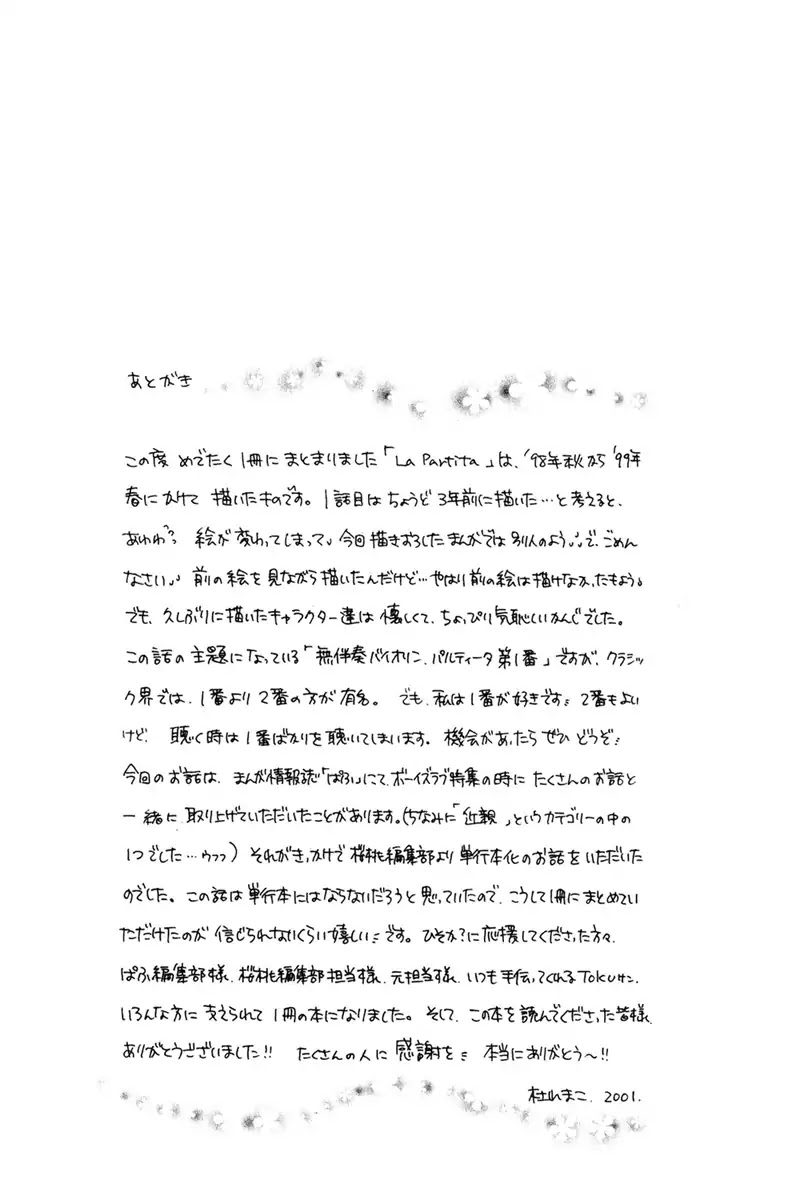 あとがき
この度 めでたく 1冊に まとまりました「La Partita」は、'98年秋から '99年
春にかけて 描いたものです。1話目は ちょうど 3年前に描いた…と考えると、
あわわ 絵が 変わってしまって 今回描きおろしたまんがでは別人のよう で、ごめん
なさい 前の絵を 見ながら描いたんだけど…やはり前の絵は描けなかったもよう。
でも、久しぶりに描いたキャラクター達は 懐しくて、ちょっぴり気恥しいかんじでした。
この話の 主題になっている「無伴奏バイオリン、パルティータ 第1番」ですが、クラシッ
ク界では、1番より 2番の方が有名。 でも、私は1番が好きです 2番もよい
けど、 聴く時は1番ばかりを聴いてしまいます。機会があったら ぜひ どうぞ
今回のお話は、まんが情報誌「ぱふ」にて、ボーイズラブ特集の時に たくさんのお話と
一緒に 取り上げていただいたことがあります。(ちなみに「近親」というカテゴリーの中の
1つでした…ウフフ) それがきっかけで 桜桃編集部より 単行本化のお話をいただいた
のでした。この話は単行本にはならないだろうと思っていたので、こうして1冊にまとめてい
ただけたのが 信じられないくらい嬉しいです。ひそか?に応援してくださった方々、
ぱふ編集部様、桜桃編集部担当様、元担当様、いつも手伝ってくれるTokuサン、
いろんな方に 支えられて 1冊の本になりました。そして、この本を読んでくださった皆様
ありがとうございました!! たくさんの人に 感謝を 本当にありがとう〜!!
杜山まこ. 2001.